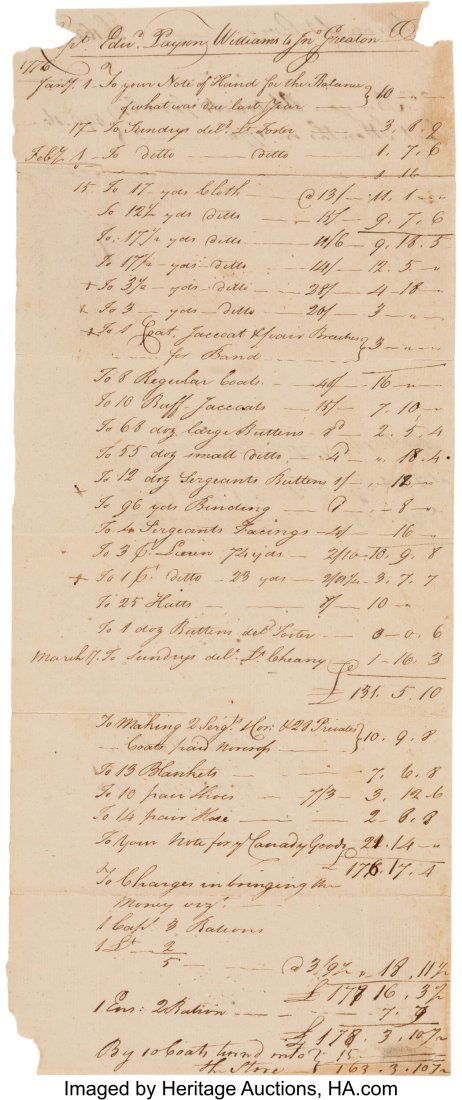 Cpt. Edwd. Payson Williams to Jno. Greaton Dr
1776
Jany. 1 - To your Note of Hand for the Ballance
of what was due last Year } 10 " "
17 - To Sundrys deld. Lt. Foster 3. 8. 9
Feby. 1 - To ditto ditto 1. 7. 6
15. To 17 yds Cloth @ 13/ 11. 1 "
To 12½ yds ditto 15/ 9. 7. 6
To 17½ yds ditto 9. 18. 5
To 17½ yds ditto 14/ 12. 5. "
+ To 3½ yds ditto 28/ 4. 18 "
+ To 3 yds ditto 20/ 3 "
+ To 1 Coat, Jaccoat & pair Breeches
for Band } 3 " "
To 8 Regular Coats 40/ 16 "
To 10 Buff Jaccoats 15/ 7. 10. "
To 68 doz large Buttens 8d 2. 5. 4
To 55 doz small ditto 4d ". 18. 4.
To 12 doz Sergeants Buttens 1/ ". 12 "
To 96 yds Binding 8 "
To 4 Sergeants Facings 4/ 16 "
To 3 ps. Linin 74 yds 2/10 10. 9. 8
+ To 1 ps. ditto 23 yds 3. 7. 7
To 25 Hatts 8/ 10 "
To 1 doz Buttens deld. Foster 0 0. 6
March 17. To Sundrys deld. Lt. Cheany 1 16. 3
£ 131. 5. 10
To Making 2 Sergts. 1 Cor: & 28 Privates
Coats paid } 10. 9. 8
To 13 Blankets 7. 6. 8
To 10 pair Shoes 7/3 3. 12. 6
To 14 pair Hose 2. 8. 8
To Your Note for ye Canady Goods 21. 14 "
£ 176. 17. 4
To Charges in bringing the
Money vizt.
1 Capt. 3 Rations
1 Lt 2
5 @ 3/9½ " 18. 11½
£ 177 16. 3½
1 Ens: 2 Ration 7. 7
£ 178. 3. 10½
By 10 Coats turnd into } 15
the Store 163. 3. 10½
Imaged by Heritage Auctions, HA.com